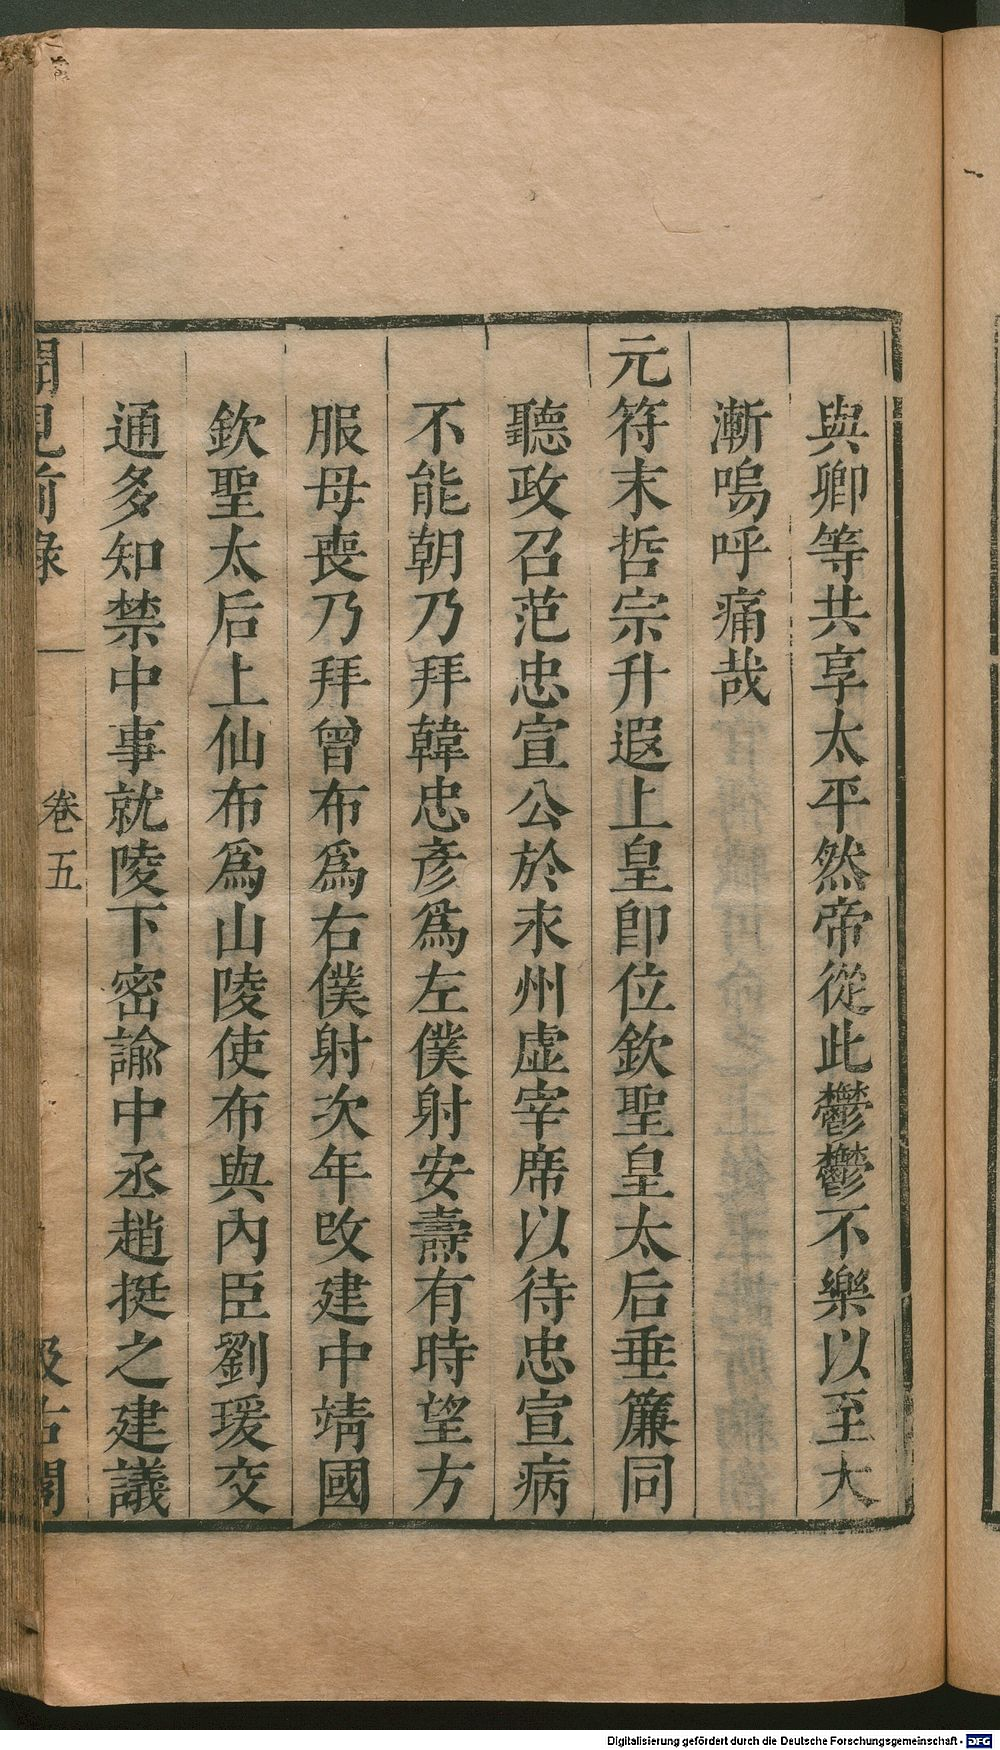 與卿等共享太平然帝從此鬱鬱不樂以至大
漸嗚呼痛哉
元符末哲宗升遐上皇卽位欽聖皇太后垂簾同
聽政召范忠宣公於永州虛宰席以待忠宣病
不能朝乃拜韓忠彥爲左僕射安燾有時望方
服母喪乃拜曾布爲右僕射次年改建中靖國
欽聖太后上仙布爲山陵使布與內臣劉瑗交
通多知禁中事就陵下密諭中丞趙挺之建議
聞見前錄
卷五
汲古閣
Digitalisierung gefördert durch die Deutsche Forschungsgemeinschaft - DFG